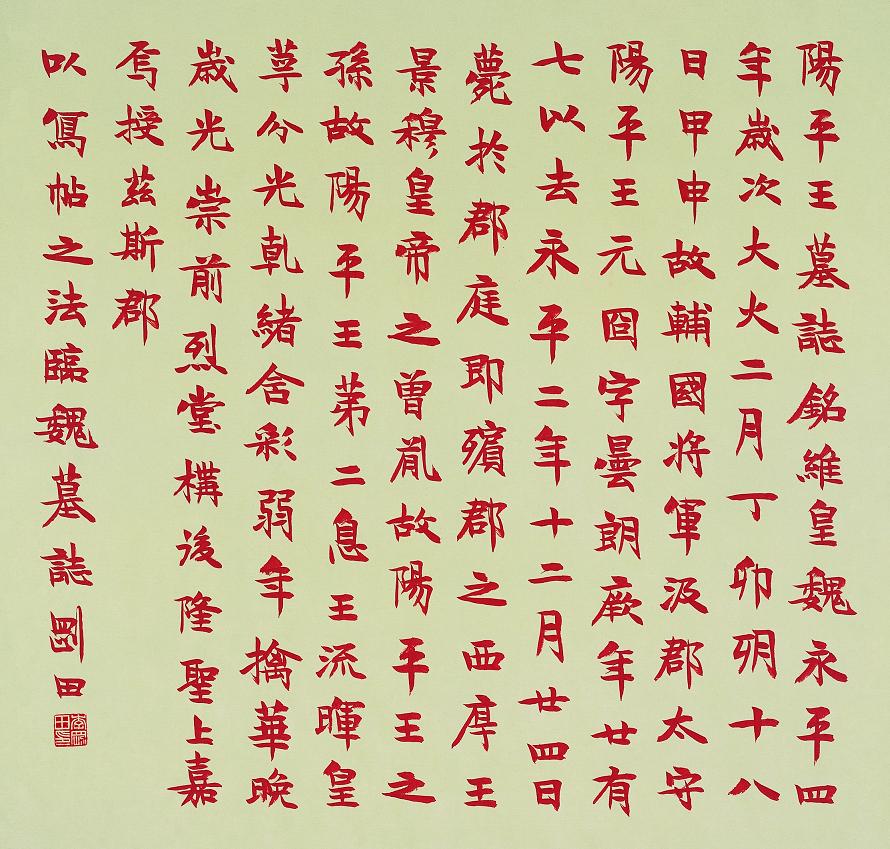 陽平王墓誌銘維皇魏永平四
年歲次大火二月丁卯朔十八
日甲申故輔國將軍汲郡太守
陽平王元囧字曇朗厥年廿有
七以去永平二年十二月廿四日
薨於郡庭即殯郡之西序王
景穆皇帝之曾胤故陽平王之
孫故陽平王第二息王流暉皇
萼分光乾緒含彩弱年摛華晚
歲光崇前烈堂構後隆聖上嘉
焉授茲斯郡
以寫帖之法臨魏墓誌剛田
李剛田印